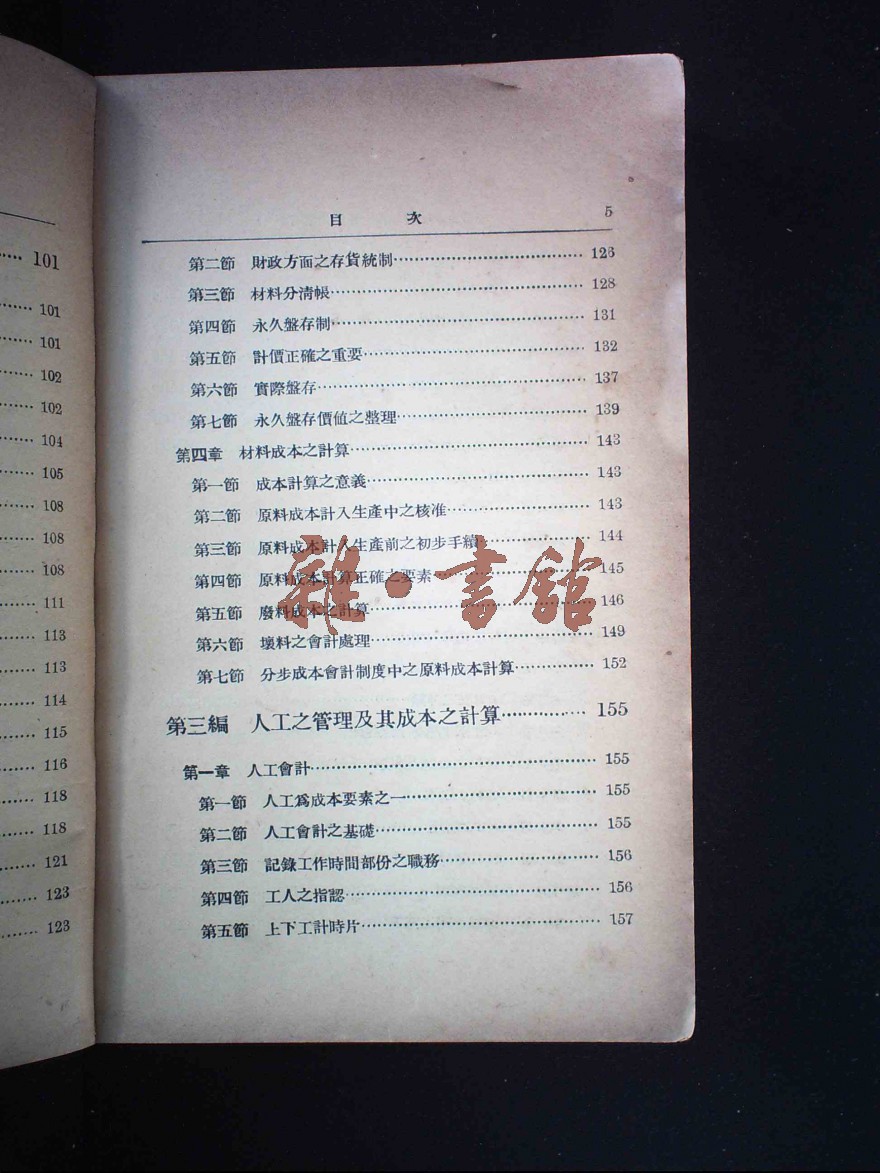 101
101
101
102
102
104
105
108
108
108
111
113
113
114
115
116
118
118
121
123
123
目 次 5
第二節 財政方面之存貨統制 126
第三節 材料分清帳 128
第四節 永久盤存制 131
第五節 計價正確之重要 132
第六節 實際盤存 137
第七節 永久盤存價値之整理 139
第四章 材料成本之計算 143
第一節 成本計算之意義 143
第二節 原料成本計入生產中之核准 143
第三節 原料成本計入生產前之初步手續 144
第四節 原料成本計算正確之要素 145
第五節 廢料成本之計算 146
第六節 壞料之會計處理 149
第七節 分步成本會計制度中之原料成本計算 152
第三編 人工之管理及其成本之計算 155
第一章 人工會計 155
第一節 人工爲成本要素之一 155
第二節 人工會計之基礎 155
第三節 記錄工作時間部份之職務 156
第四節 工人之指認 156
第五節 上下工計時片 157
雜·書館